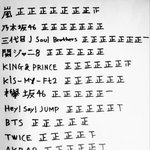 嵐 正正正正正正
乃木坂46 正正正正正
三代目 J Soul Brothers 正正正正
関ジャニ∞ 正正正正
KING & PRINCE 正正正正
kis-My-Ft2 正正正正
欅坂46 正正正正
Hey! Say! JUMP 正正正
BTS 正正正
TWICE 正正正
AKB48